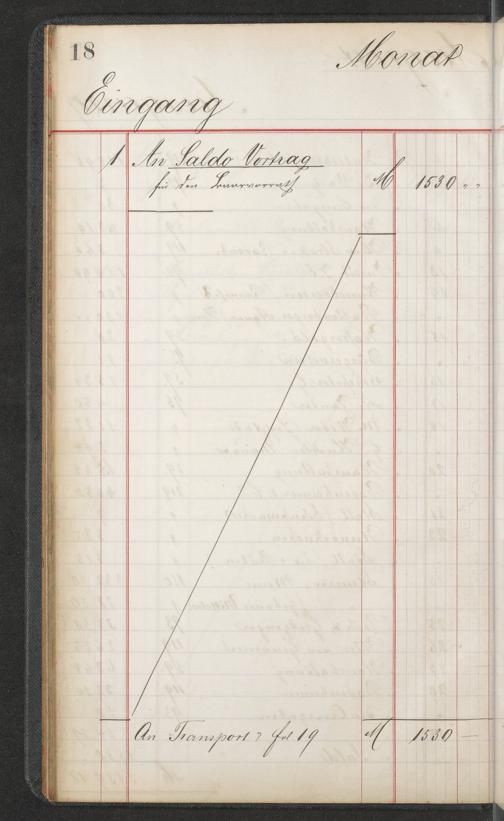 18
Monat
Eingang
1 An Saldo Vortrag
für den Baarvorrath M 1530 " "
An Transport fol 19 M 1530 —